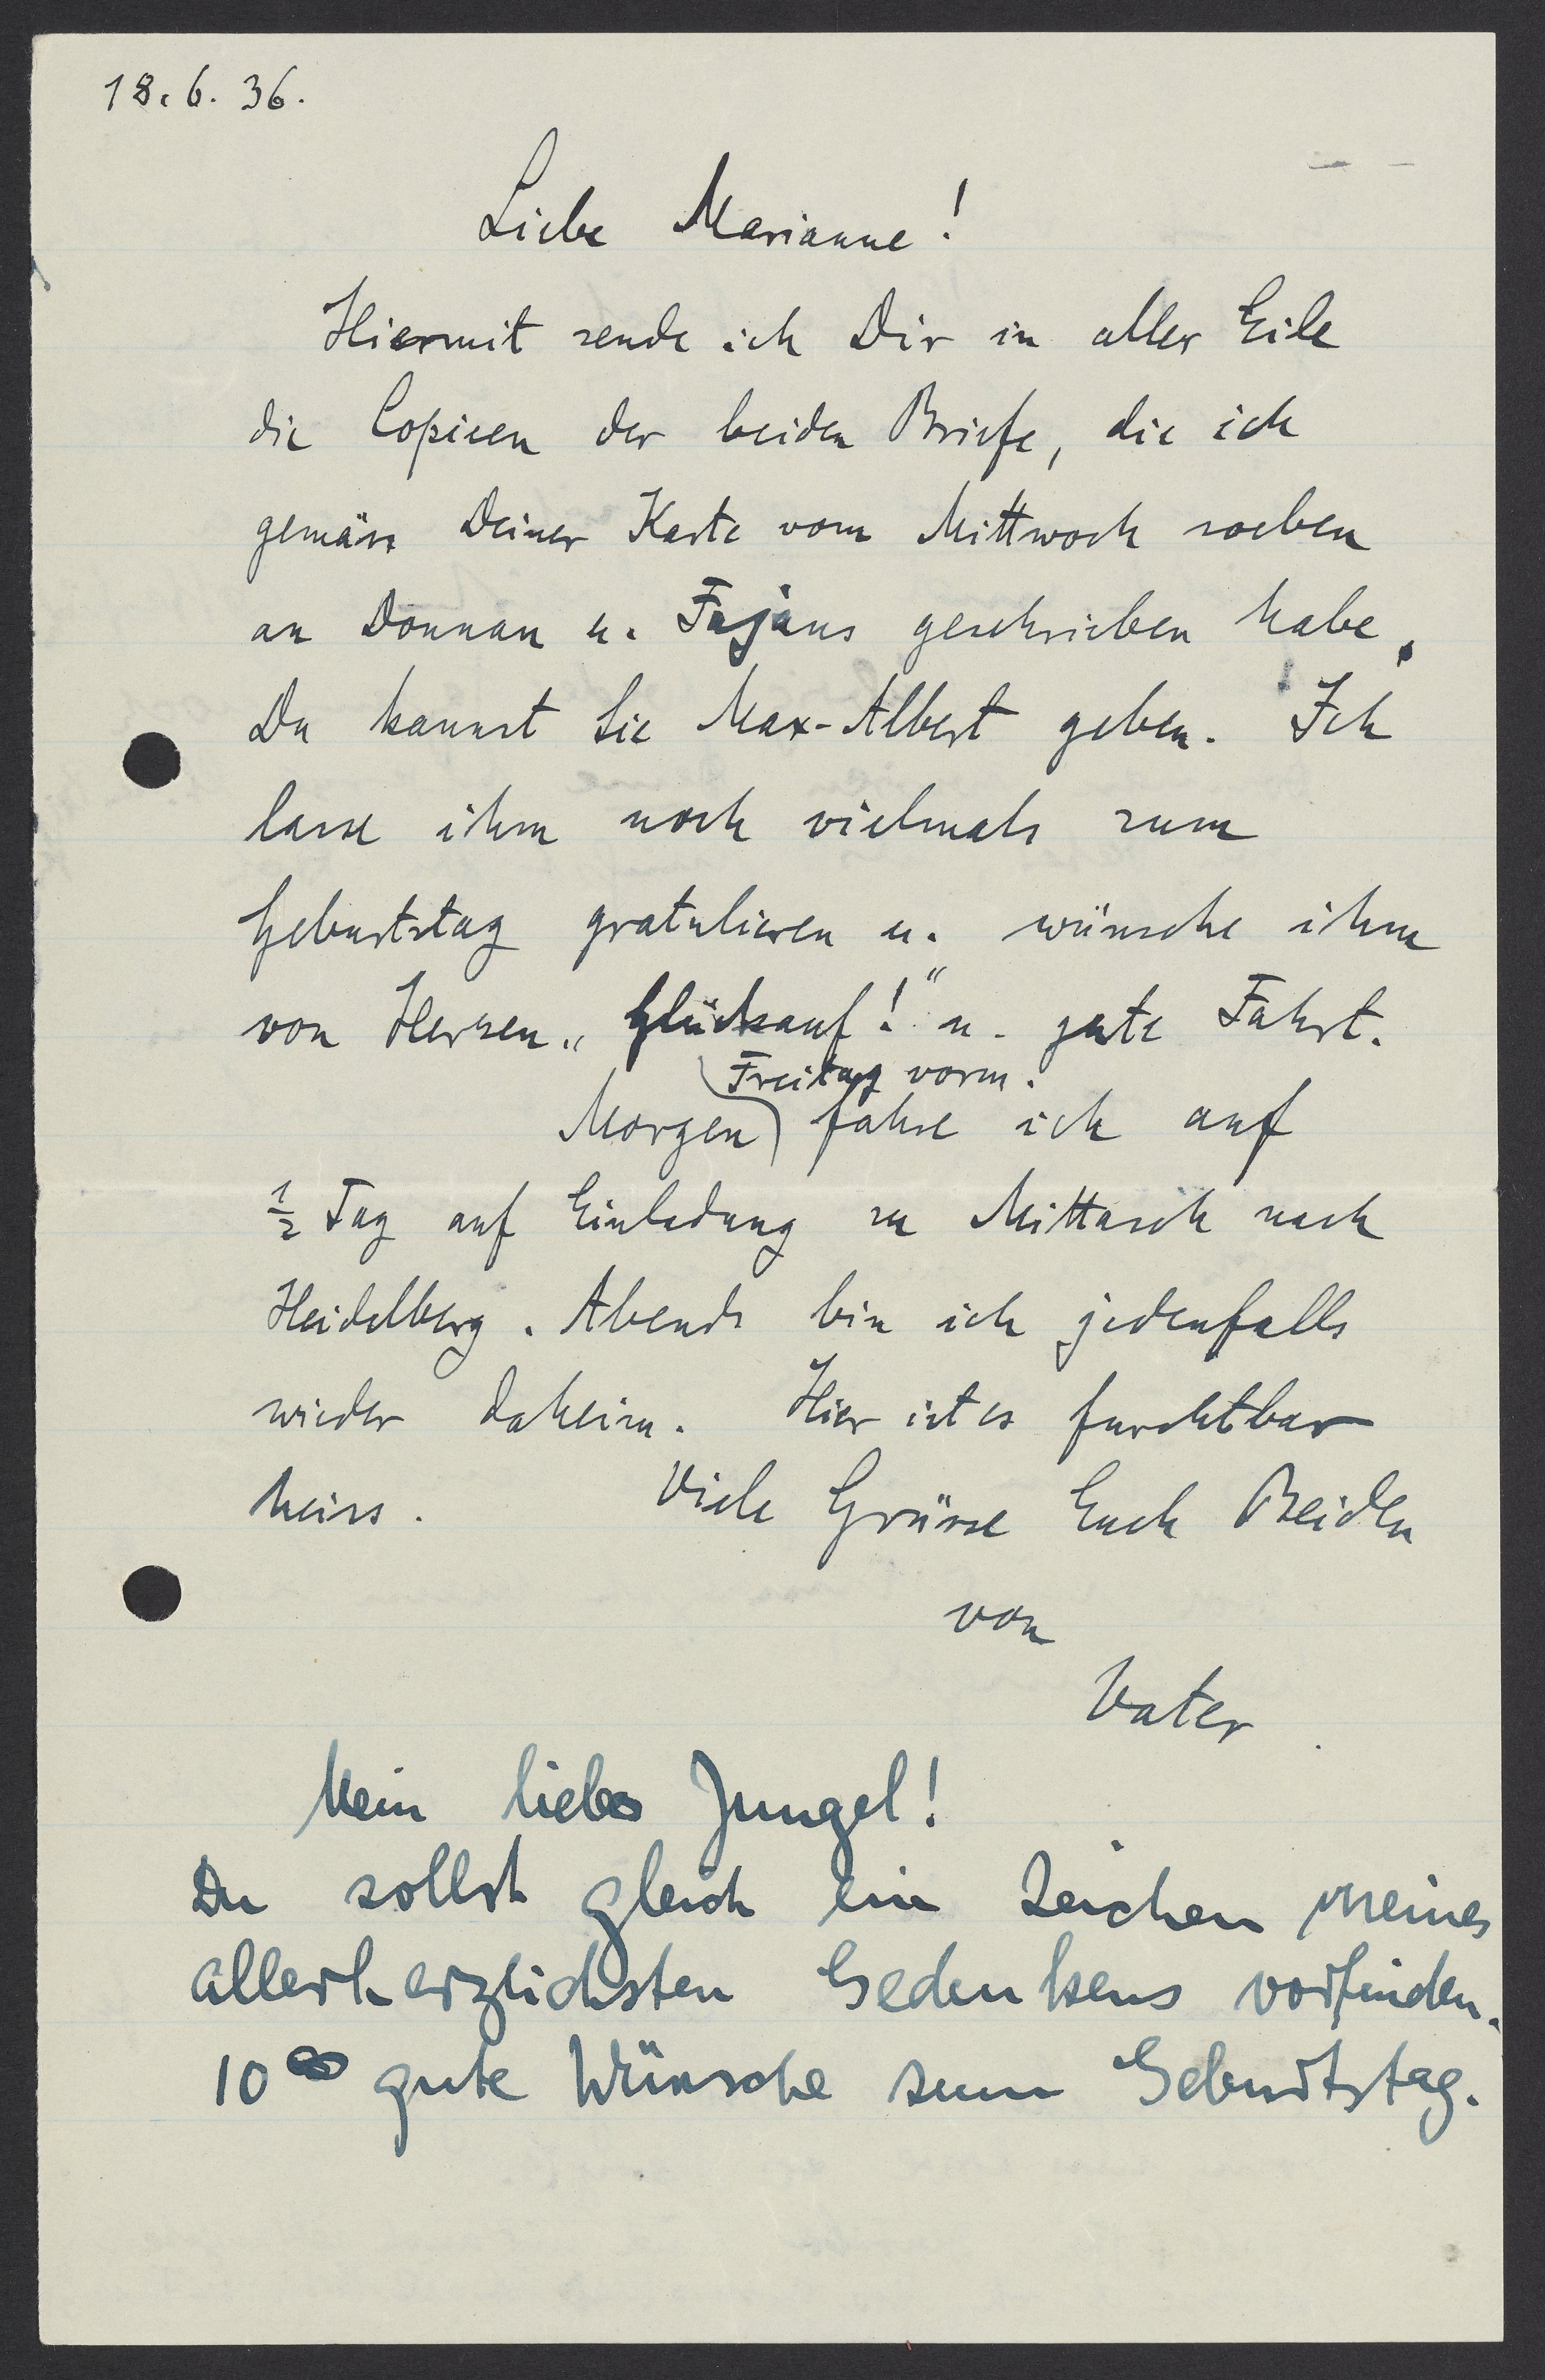 18. 6. 36.
Liebe Marianne!
Hiermit sende ich Dir in aller Eile
die Copieen der beiden Briefe, die ich
gemäss Deiner Karte vom Mittwoch soeben
an Donnan u. Fajans geschrieben habe.
Du kannst sie Max-Albert geben. Ich
lasse ihm noch vielmals zum
Geburtstag gratulieren u. wünsche ihm
von Herzen „Glückauf!“ u. gute Fahrt.
Freitag vorm.
Morgen fahre ich auf
1/2 Tag auf Einladung zu Mittasch nach
Heidelberg. Abends bin ich jedenfalls
wieder daheim. Hier ist es furchtbar
heiss. Viele Grüsse Euch Beiden
von
Vater.
Mein liebes Jungel!
Du sollst gleich ein Zeichen meines
allerherzlichsten Gedenkens vorfinden.
10∞ gute Wünsche zum Geburtstag.